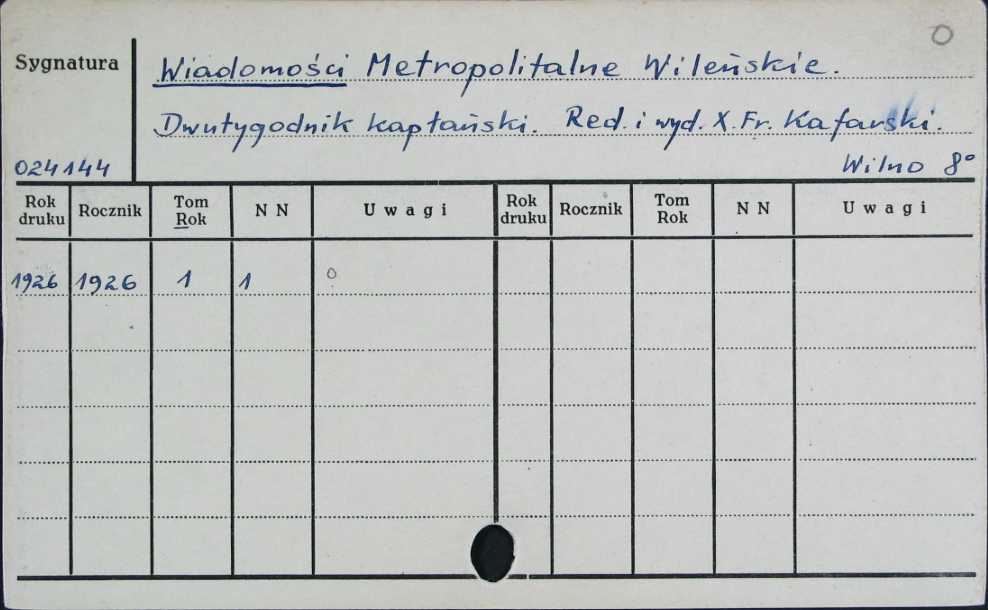 0
Sygnatura
Wiadomości Metropolitalne Wileńskie.
Dwutygodnik kapłański. Red. i wyd. X. Fr. Kafarski.
024144
Wilno 8°
Rok druku Rocznik Tom Rok N N Uwagi Rok druku Rocznik Tom Rok N N Uwagi
1926 1926 1 1 0